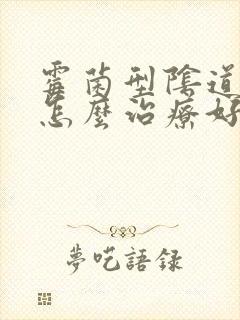 霉菌型陰道
怎麼治療好
夢呓語録